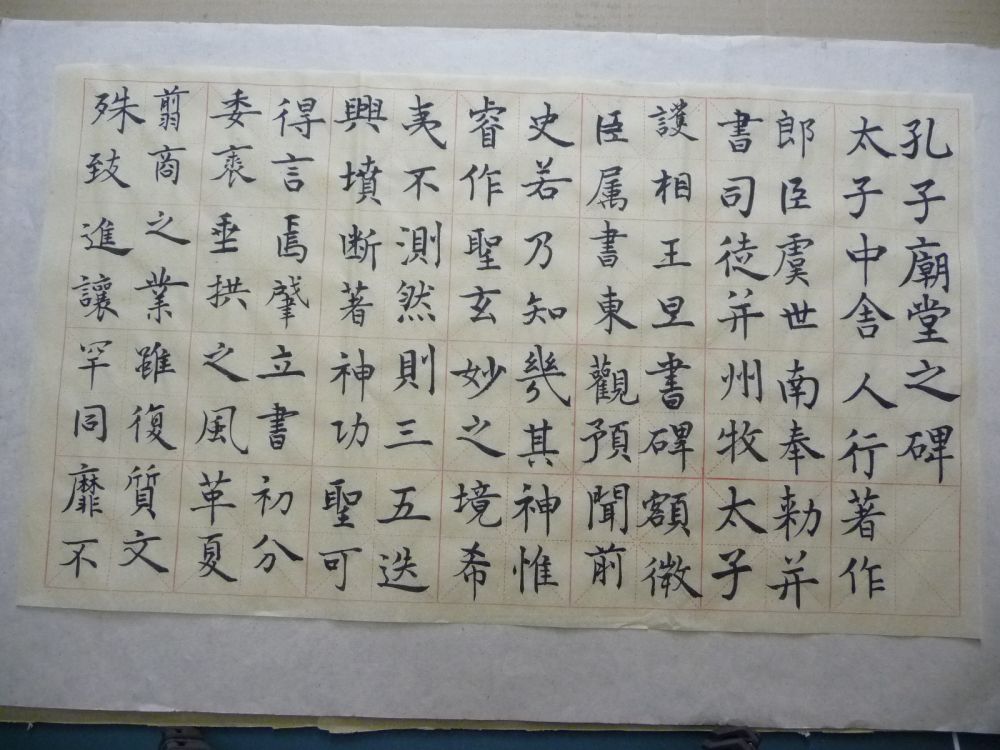 孔子廟堂之碑
太子中舎人行著作
郎臣虞世南奉勅并
書司徒并州牧太子
護相王旦書碑額微
臣属書東觀預聞前
史若乃知幾其神惟
睿作聖玄妙之境希
夷不測然則三五迭
興墳断著神功聖可
得言焉肇立書初分
委裘垂拱之風革夏
翦商之業雖復質文
殊致進讓罕同靡不